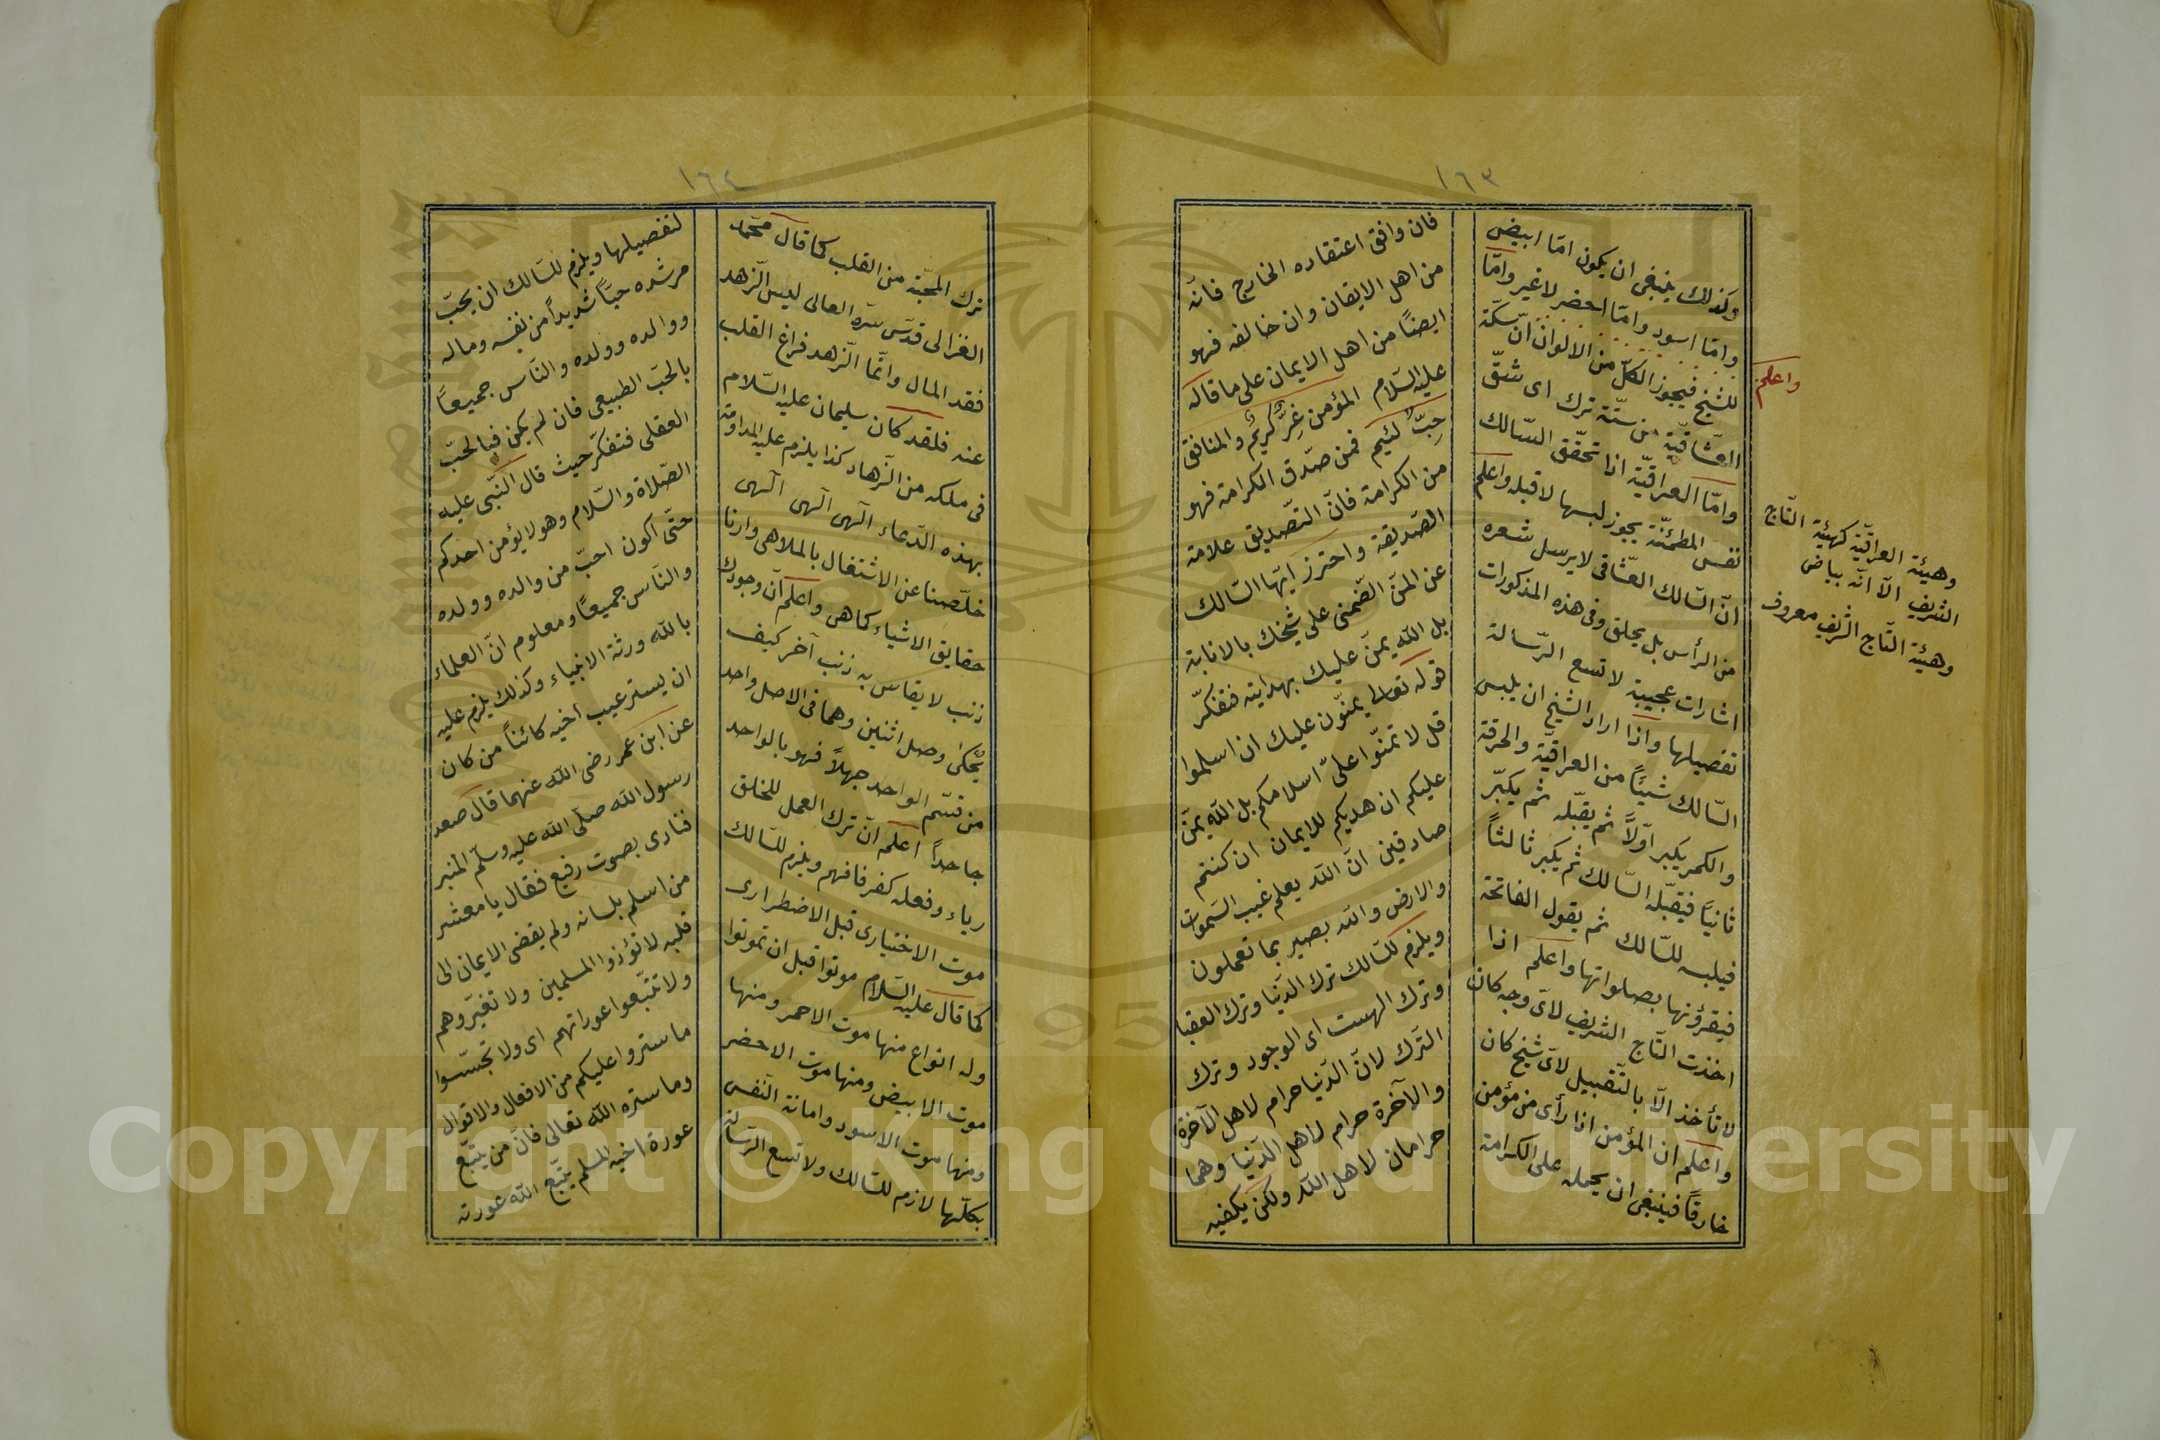 ١٦٣
وكذلك ينبغى ان يكون امّا ابيض
وامّا اسود وامّا احضر لا غير وامّا
للشيخ فيجوز الكلّ من الالوان انّ سكّة
العشّاقيّة من ستّة ترك اى شقّ
وامّا العراقيّة اذا تحقّق السّالك
نفس المطمئنّة يجوز لبسها لا قبله واعلم
انّ السّالك العشّاقى لا يرسل شعره
من الرأس بل يحلق وفى هذه المذكورات
اشارات عجيبة لا تسع الرّسالة
تفصيلها واذا اراد الشيخ ان يلبس
السّالك شيئاً من العراقيّة والخرقة
والكمر يكبر اوّلاً ثم يقبّله ثم يكبّر
ثانياً فيقبّله السّالك ثم يكبر ثالثاً
فيلبسه للسّالك ثم يقول الفاتحة
فيقرؤنها بصلواتها واعلم اذا
اخذت التّاج الشريف لاىّ وجه كان
لا تأخذ الاّ بالتّقبيل لاىّ شيخ كان
واعلم ان المؤمن اذا رأى من مؤمن
خارقاً فينبغى ان يحمله على الكرامة
واعلم
وهيئة العراقيّة كهيئة التّاج
الشريف الاّ انّه بياض
وهيئة التّاج الشريف معروف
فان وافق اعتقاده الخارج فانّه
من اهل الايقان وان خالفه فهو
ايضاً من اهل الايمان على ما قاله
عليه السّلام المؤمن غِرٌّ كريمٌ والمنافق
خِبٌّ لئيم فمن صدّق الكرامة فهو
من الكرامة فانّ التّصديق علامة
الصّديقة واحترز ايّها السّالك
عن المنّ الضّمنى على شيخك بالانابة
بل اللّه يمنّ عليك بهدايته فتفكّر
قوله تعالى يمنّون عليك ان اسلموا
قل لا تمنّوا علىّ اسلامكم بل اللّه يمنّ
عليكم ان هديكم للايمان ان كنتم
صادقين انّ اللّه يعلم غيب السّموات
والارض واللّه بصير بما تعملون
ويلزم للسّالك ترك الدّنيا وترك العقبا
وترك الهست اى الوجود وترك
التّرك لانّ الدّنيا حرام لاهل الآخرة
والآخرة حرام لاهل الدّنيا وهما
حرامان لاهل اللّه ولكن يكفيه
١٦٤
ترك المحبّة من القلب كما قال محمّد
الغزالى قدّس سرّه العالى ليس الزّهد
فقد المال وانّما الزّهد فراغ القلب
عنه فلقد كان سليمان عليه السّلام
فى ملكه من الزّهاد كذا يلزم عليه المداومة
بهذه الدّعاء الٓهى الٓهى الٓهى
خلّصنا عن الاشتغال بالملاهى وارنا
حقايق الاشياء كما هى واعلم انّ وجودك
ذنب لا يقاس به ذنب آخر كيف
يحكى وصل اثنين وهما فى الاصل واحد
من قسّم الواحد جهلاً فهو بالواحد
جاحداً اعلم انّ ترك العمل للخلق
رياء وفعله كفر فافهم ويلزم للسّالك
موت الاختيارى قبل الاضطرارى
كما قال عليه السّلام موتوا قبل ان تموتوا
وله انواع منها موت الاحمر ومنها
موت الابيض ومنها موت الاحضر
ومنها موت الاسود وامانة النّفس
بكلّها لازم للسّالك ولا تسع الرّسالة
لتفصيلها ويلزم للسّالك ان يحبّ
مرشده حبّاً شديداً من نفسه وماله
ووالده وولده والنّاس جميعاً
بالحبّ الطبيعى فان لم يكن فبالحبّ
العقلى فتفكّر حيث قال النّبى عليه
الصّلاة والسّلام وهو لا يؤمن احدكم
حتّى اكون احبّ من والده وولده
والنّاس جميعاً ومعلوم انّ العلماء
باللّه ورثة الانبياء وكذلك يلزم عليه
ان يستر عيب اخيه كائناً من كان
عن ابن عمر رضى اللّه عنهما قال صعد
رسول اللّه صلّى اللّه عليه وسلّم المنبر
فنادى بصوت رفيع فقال يا معشر
من اسلم بلسانه ولم يفضى الايمان الى
قلبه لا تؤذوا المسلمين ولا تغيّروهم
ولا تتّبعوا عوراتهم اى ولا تجسّسوا
ما ستروا عليكم من الافعال والاقوال
وما ستره اللّه تعالى فانّ من يتّبع
عورة اخيه المسلم يتّبع اللّه عورته
Copyright © King Saud University